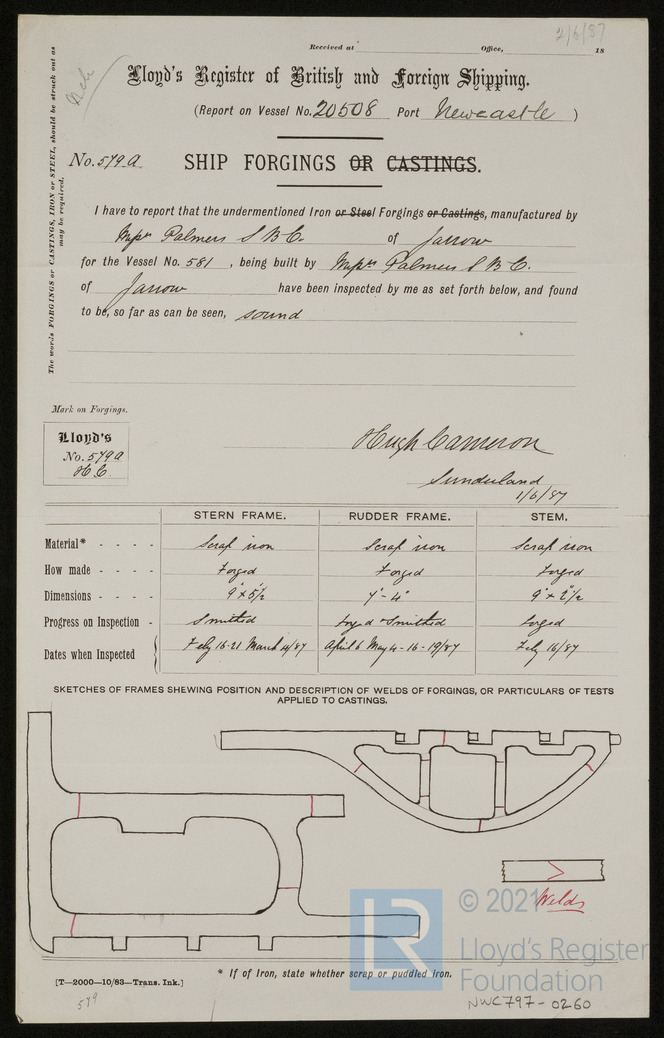 2/6/87
Received at Office, 18
Lloyd's Register of British and Foreign Shipping.
(Report on Vessel No. 20508 Port Newcastle )
No. 579A SHIP FORGINGS OR CASTINGS.
The words FORGINGS or CASTINGS, IRON or STEEL, should be struck out as
may be required.
I have to report that the undermentioned Iron or Steel Forgings or Castings, manufactured by
Messrs Palmers S B C. of Jarrow
for the Vessel No. 581 , being built by Messrs Palmers S B C.
of Jarrow have been inspected by me as set forth below, and found
to be, so far as can be seen, sound
Mark on Forgings.
Lloyd's
No. 579A
H C.
Hugh Cameron
Sunderland
1/6/87
STERN FRAME. RUDDER FRAME. STEM.
Material* - - - - Scrap iron Scrap iron Scrap iron
How made - - - - Forged Forged Forged
Dimensions - - - - 9" x 5½" 7"-4" 9" x 2½"
Progress on Inspection - Smithed forged & Smithed forged
Dates when Inspected { Feby 16-21 March 4/87 April 6 May 4-16-19/87 Feby 16/87
SKETCHES OF FRAMES SHEWING POSITION AND DESCRIPTION OF WELDS OF FORGINGS, OR PARTICULARS OF TESTS
APPLIED TO CASTINGS.
Welds
© 2021
Lloyd's Register
Foundation
LR
* If of Iron, state whether scrap or puddled iron.
[T—2000—10/83—Trans. Ink.]
579
NWC797-0260